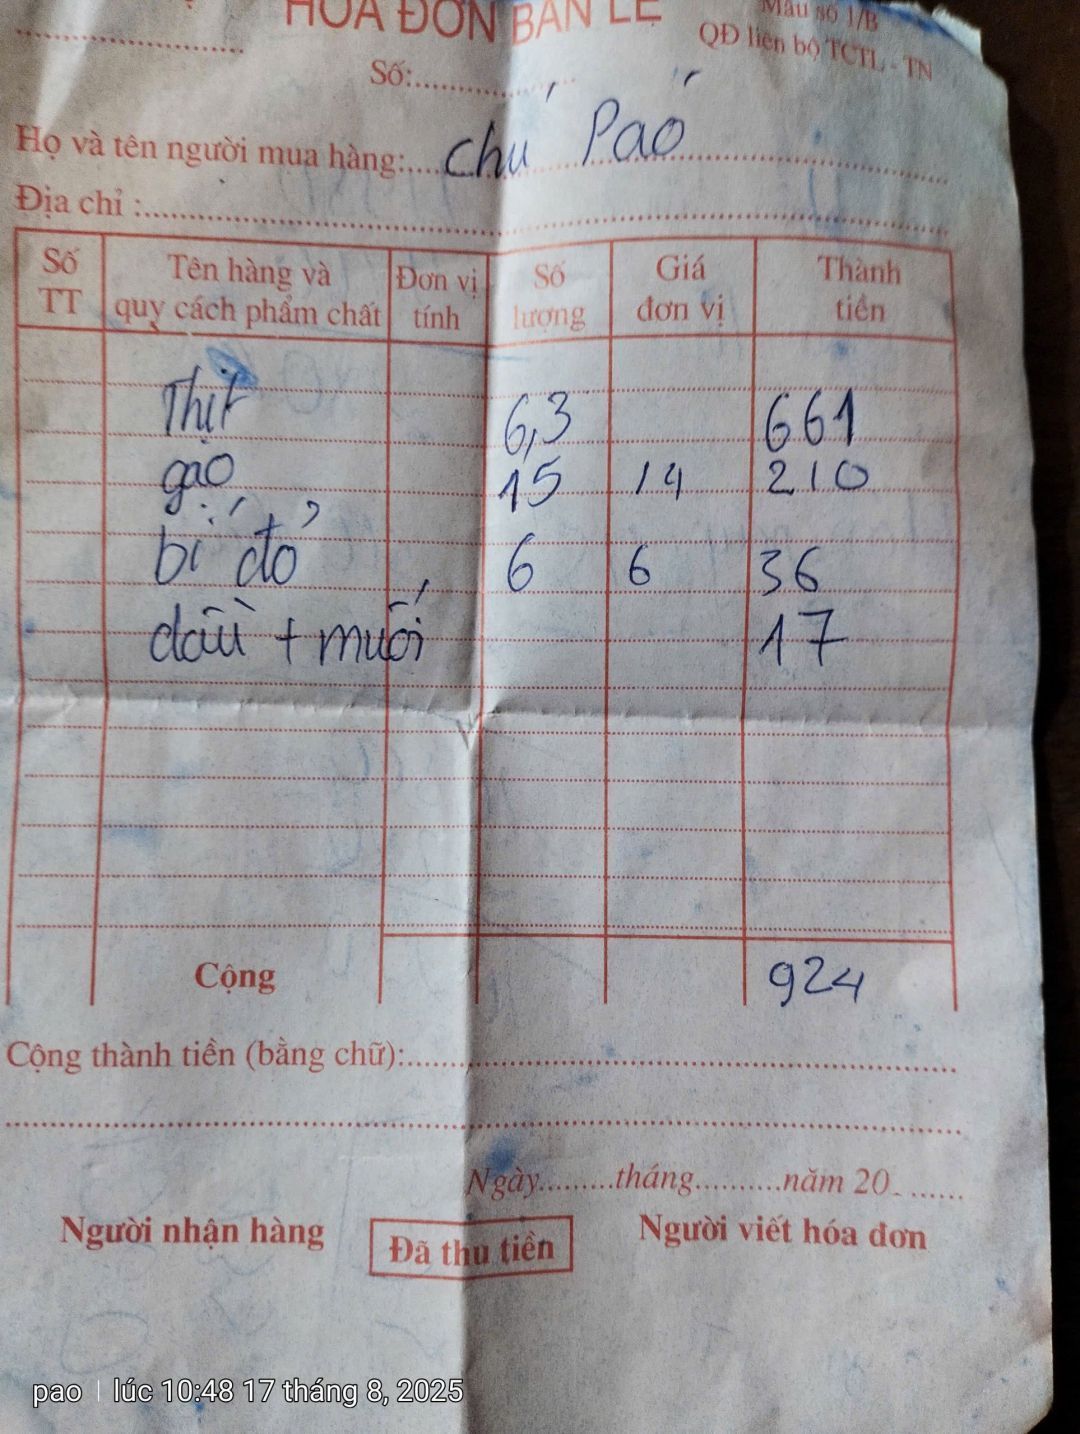 HÓA ĐƠN BÁN LẺ
Mẫu số 1/B
QĐ liên bộ TCTL - TN
Số:
Họ và tên người mua hàng: chú Paó
Địa chỉ :
Số TT | Tên hàng và quy cách phẩm chất | Đơn vị tính | Số lượng | Giá đơn vị | Thành tiền
Thịt 6,3 661
gạo 15 14 210
bí đỏ 6 6 36
dầu + muối 17
Cộng 924
Cộng thành tiền (bằng chữ):
Ngày.........tháng..........năm 20
Người nhận hàng Đã thu tiền Người viết hóa đơn
pao | lúc 10:48 17 tháng 8, 2025